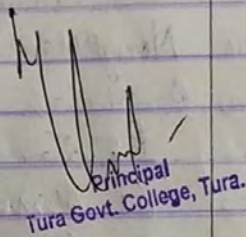 Principal
Tura Govt. College, Tura.